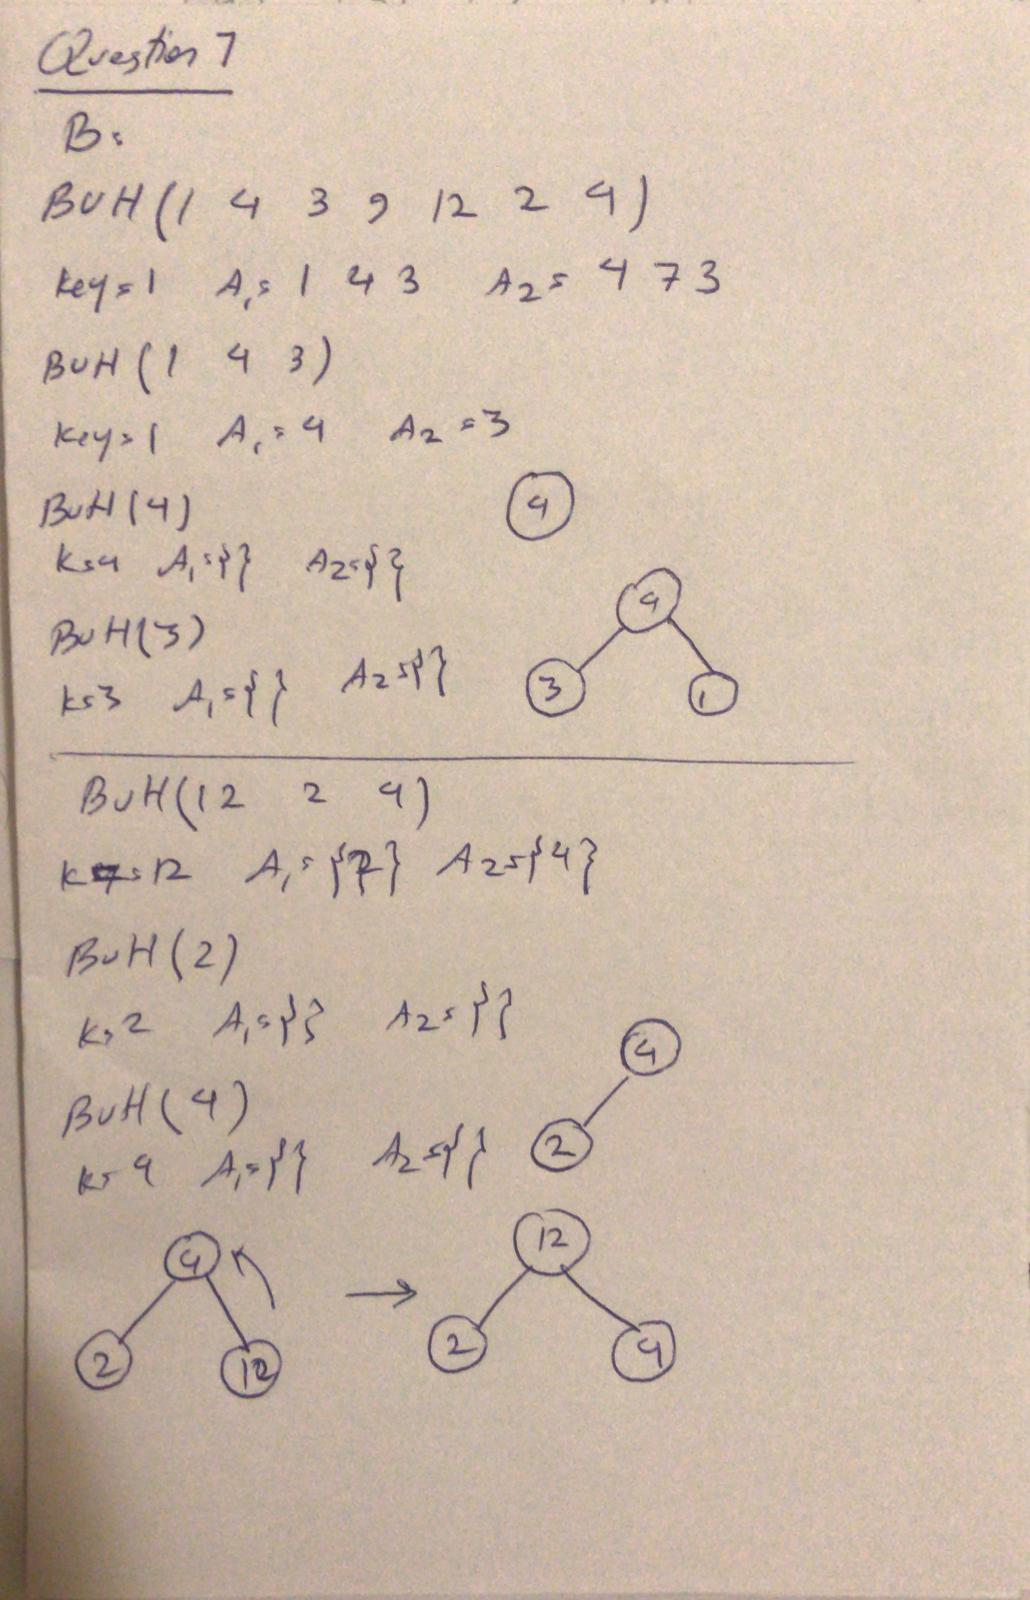 Question 7
B:
BUH(1 4 3 9 12 2 4)
key=1 A1= 1 4 3 A2= 4 7 3
BUH(1 4 3)
key=1 A1=4 A2=3
BUH(4)
4
k=4 A1={} A2={}
4
BUH(3)
3 1
k=3 A1={} A2={}
BUH(12 2 4)
k=12 A1={2} A2={4}
BUH(2)
k=2 A1={} A2={}
4
BUH(4)
2
k=4 A1={} A2={}
4 → 12
2 12 2 4